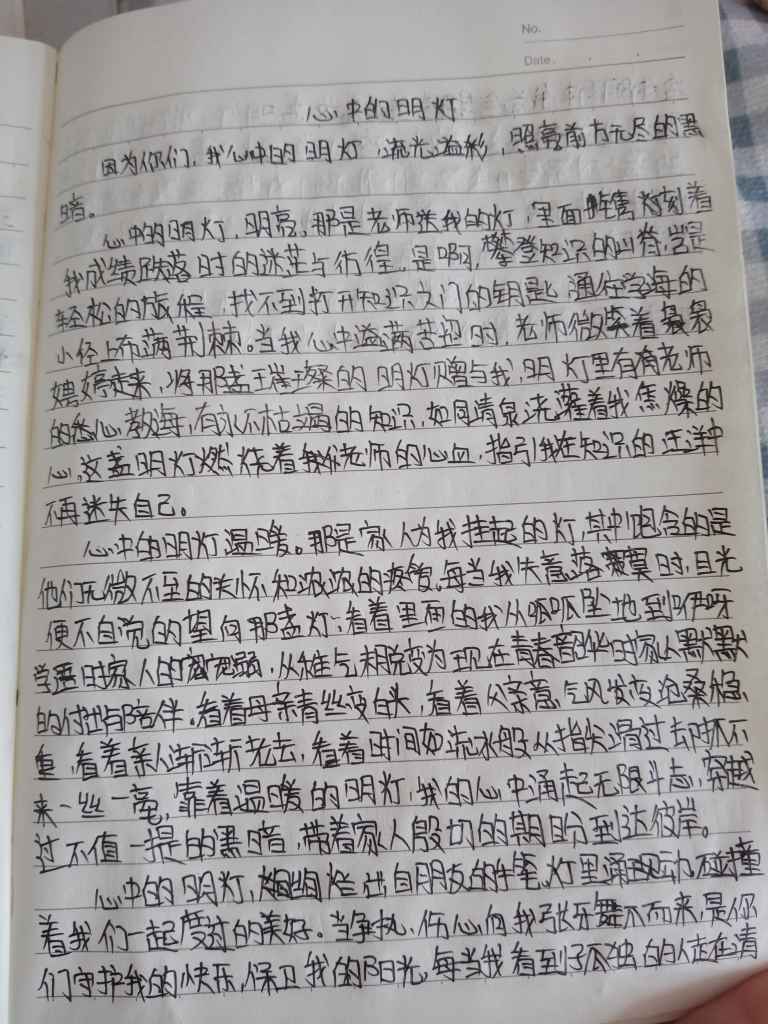 No.
Date.
心中的明灯
因为你们，我心中的明灯流光溢彩，照亮前方无尽的黑
暗。
心中的明灯，明亮。那是老师送我的灯，里面刻着
我成绩跌落时的迷茫与彷徨，是啊，攀登知识的山脊，岂是
轻松的旅程，找不到打开知识大门的钥匙，通往学海的
小径上布满荆棘。当我心中溢满苦恼时，老师微笑着袅袅
娉婷走来，将那盏璀璨的明灯赠与我，明灯里有着老师
的悉心教诲，有永不枯竭的知识，如同清泉浇灌着我焦燥的
心，这盏明灯燃烧着老师的心血，指引我在知识的汪洋中
不再迷失自己。
心中的明灯温暖。那是家人为我挂起的灯，其中饱含的是
他们无微不至的关怀和浓浓的疼爱。每当我失意落寞时，目光
便不自觉的望向那盏灯，看着里面的我从呱呱坠地到咿呀
学语时家人的，从稚气未脱变为现在青春韶华时家人默默
的付出与陪伴。看着母亲青丝变白头，看着父亲意气风发变沧桑稳
重，看着亲人渐渐老去，看着时间如流水般从指尖滑过却抓不
来一丝一毫，靠着温暖的明灯，我的心中涌起无限斗志，穿越
过不值一提的黑暗，带着家人殷切的期盼到达彼岸。
心中的明灯，绚烂出自朋友的手笔，灯里涌现动碰撞
着我们一起度过的美好。当争执、伤心向我张牙舞爪而来，是你
们守护我的快乐，保卫我的阳光，每当我看到孤独的人走在清